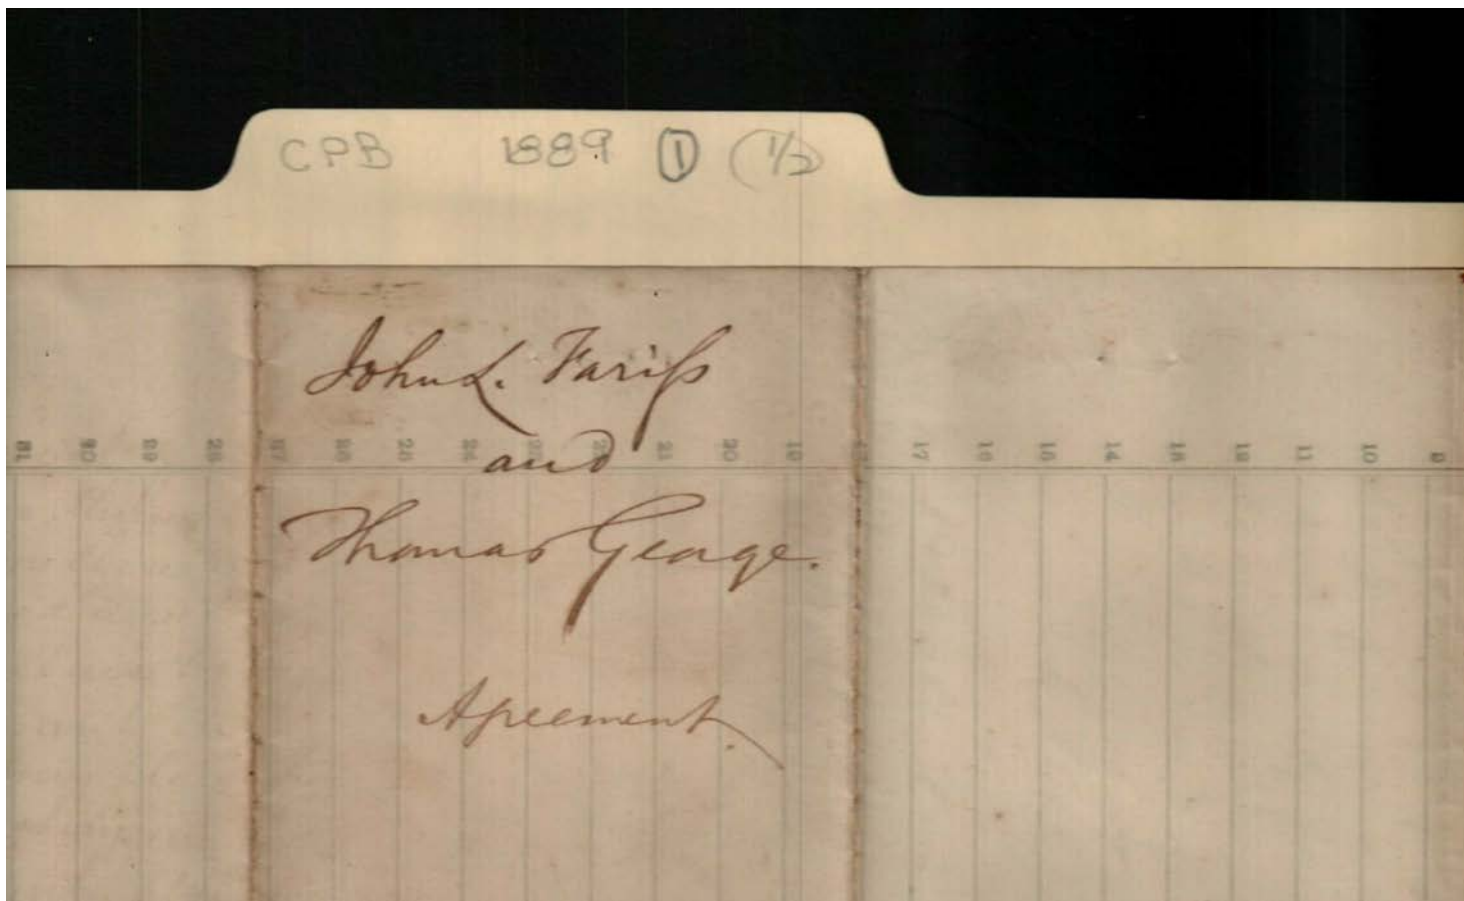 CPB 1889 ① (1/2)
John L. Fariſs
and
Thomas George.
Agreement.
31 30 29 28 27 26 25 24 23 22 21 20 19 18 17 16 15 14 13 12 11 10 9